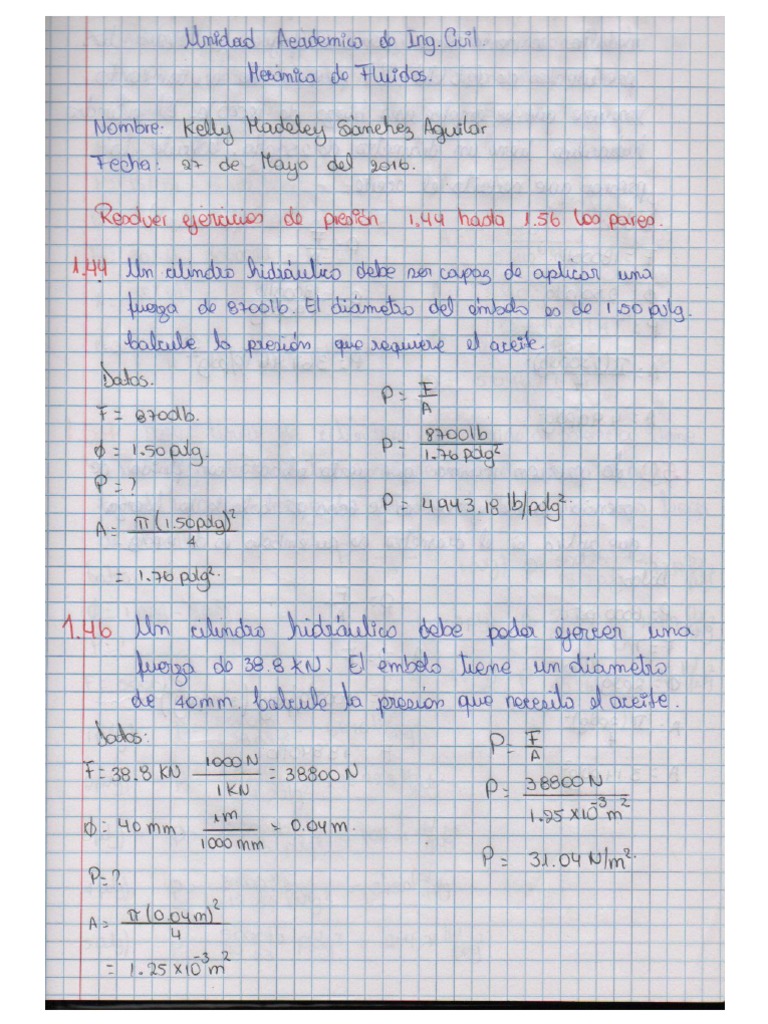 Unidad Academica de Ing. Civil.
Mecánica de Fluidos.
Nombre: Kelly Madeley Sánchez Aguilar
Fecha: 27 de Mayo del 2016.
Resolver ejercicios de presión 1.44 hasta 1.56 los pares.
1.44 Un cilindro hidráulico debe ser capaz de aplicar una
fuerza de 8700lb. El diámetro del émbolo es de 1.50 pulg.
Calcule la presión que requiere el aceite.
Datos.
F = 8700lb.
φ = 1.50 pulg.
P = ?
A = π(1.50pulg)² / 4
= 1.76 pulg².
P = F / A
P = 8700lb / 1.76 pulg²
P = 4943.18 lb/pulg².
1.46 Un cilindro hidráulico debe poder ejercer una
fuerza de 38.8 KN. El émbolo tiene un diámetro
de 40mm. Calcule la presión que necesita el aceite.
Datos:
F = 38.8 KN 1000 N / 1 KN = 38800 N
φ = 40 mm 1m / 1000 mm = 0.04 m.
P = ?
A = π(0.04m)² / 4
= 1.25 x10⁻³ m²
P = F / A
P = 38800 N / 1.25 x10⁻³ m²
P = 31.04 N/m².